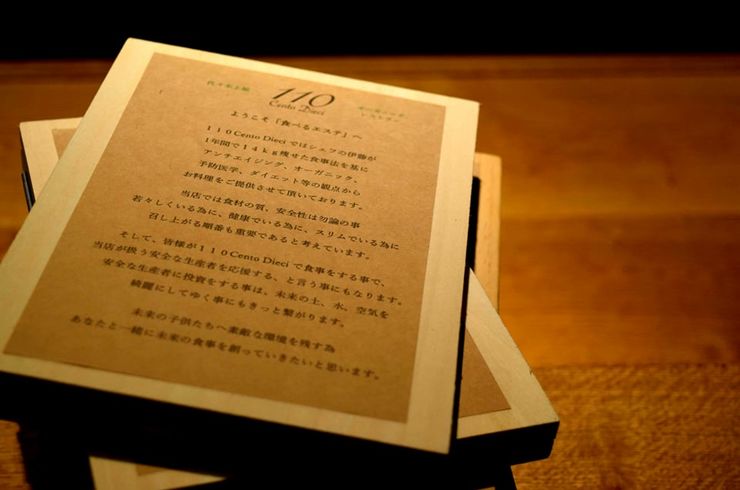 代々木上原
110
Cento Dieci
ようこそ「食べるエステ」へ
110Cento Dieciではシェフの伊藤が
1年間で14kg痩せた食事法を基に
アンチエイジング、オーガニック、
予防医学、ダイエット等の観点から
お料理をご提供させて頂いております。
当店では食材の質、安全性は勿論の事
若々しくいる為に、健康でいる為に、スリムでいる為に
召し上がる順番も重要であると考えています。
そして、皆様が110Cento Dieciで食事をする事で、
当店が扱う安全な生産者を応援する、と言う事にもなります。
安全な生産者に投資をする事は、未来の土、水、空気を
綺麗にしてゆく事にもきっと繋がります。
未来の子供たちへ素敵な環境を残す為
あなたと一緒に未来の食事を創っていきたいと思います。